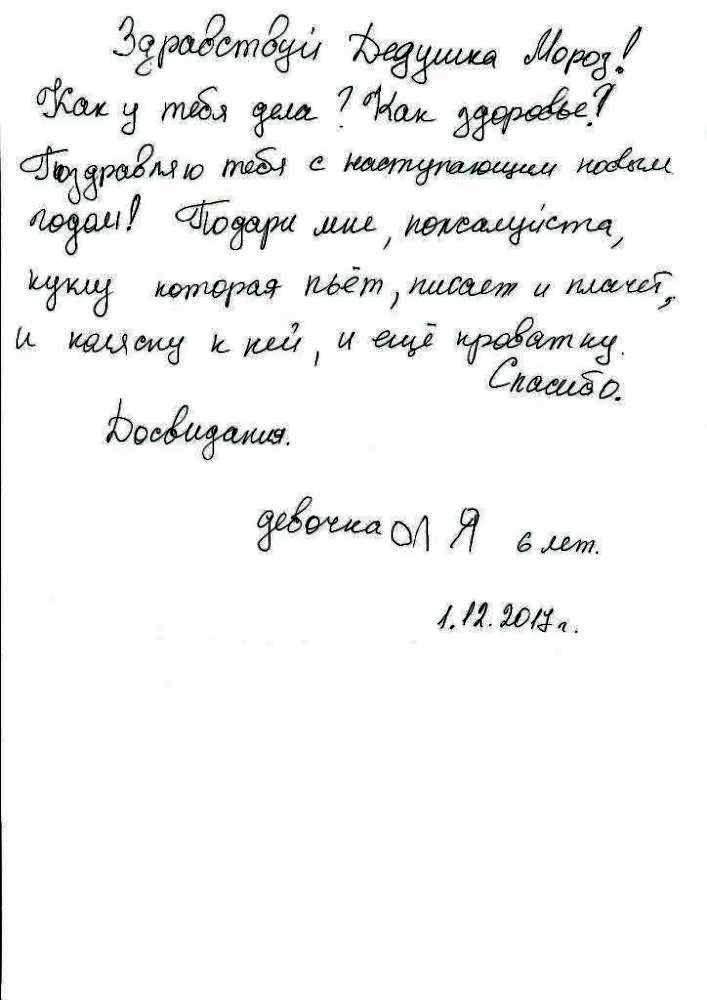 Здравствуй Дедушка Мороз!
Как у тебя дела? Как здоровье?
Поздравляю тебя с наступающим новым
годом! Подари мне, пожалуйста,
куклу которая пьёт, писает и плачет,
и коляску к ней, и ещё кроватку.
Спасибо.
Досвидания.
девочка ОЛЯ 6 лет.
1.12.2017г.